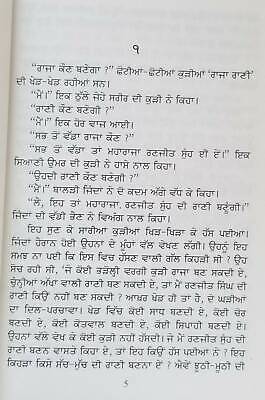 ੧
"ਰਾਜਾ ਕੌਣ ਬਣੇਗਾ ?" ਛੋਟੀਆਂ-ਛੋਟੀਆਂ ਕੁੜੀਆਂ 'ਰਾਜਾ ਰਾਣੀ'
ਦੀ ਖੇਡ-ਖੇਡ ਰਹੀਆਂ ਸਨ।
"ਮੈਂ।" ਇਕ ਠੁੱਲੇ ਜੇਹੇ ਸਰੀਰ ਦੀ ਕੁੜੀ ਨੇ ਕਿਹਾ।
"ਰਾਣੀ ਕੌਣ ਬਣੇਗੀ ?"
"ਮੈਂ।" ਇਕ ਹੋਰ ਵਾਜ ਆਈ।
"ਸਭ ਤੋਂ ਵੱਡਾ ਰਾਜਾ ਕੌਣ ?"
"ਸਭ ਤੋਂ ਵੱਡਾ ਤਾਂ ਮਹਾਰਾਜਾ ਰਣਜੀਤ ਸੁੰਹ ਈ ਏਂ।" ਇਕ
ਸਿਆਣੀ ਉਮਰ ਦੀ ਕੁੜੀ ਨੇ ਹਾਸੇ ਨਾਲ ਕਿਹਾ।
"ਉਹਦੀ ਰਾਣੀ ਕੌਣ ਬਣੇਗੀ ?"
"ਮੈਂ।" ਬਾਲੜੀ ਜਿੰਦਾਂ ਨੇ ਦੋ ਕਦਮ ਅੱਗੇ ਵੱਧ ਕੇ ਕਿਹਾ।
"ਲੈ, ਇਹ ਤਾਂ ਮਹਾਰਾਜਾ, ਰਣਜੀਤ ਸੁੰਹ ਦੀ ਰਾਣੀ ਬਣੂੰਗੀ।"
ਜਿੰਦਾਂ ਦੀ ਵੱਡੀ ਭੈਣ ਨੇ ਵਿਅੰਗ ਨਾਲ ਕਿਹਾ।
ਇਹ ਸੁਣ ਕੇ ਸਾਰੀਆਂ ਕੁੜੀਆਂ ਖਿੜ-ਖਿੜਾ ਕੇ ਹੱਸ ਪਈਆਂ।
ਜਿੰਦਾਂ ਹੈਰਾਨ ਹੋਈ ਉਹਨਾਂ ਦੇ ਮੂੰਹਾਂ ਵੱਲ ਵੇਖਣ ਲੱਗੀ। ਉਹਨੂੰ ਇਹ
ਸਮਝ ਨਾ ਪਈ ਕਿ ਇਸ ਵਿਚ ਹੱਸਣ ਵਾਲੀ ਗੱਲ ਕਿਹੜੀ ਸੀ ? ਉਹ
ਸੋਚ ਰਹੀ ਸੀ, 'ਜੇ ਕੋਈ ਭੜੋਲੀ ਵਰਗੀ ਕੁੜੀ ਰਾਜਾ ਬਣ ਸਕਦੀ ਏ,
ਚੁੰਨੀਆਂ ਅੱਖਾਂ ਵਾਲੀ ਰਾਣੀ ਬਣ ਸਕਦੀ ਏ, ਤਾਂ ਮੈਂ ਰਣਜੀਤ ਸਿੰਘ ਦੀ
ਰਾਣੀ ਕਿਉਂ ਨਹੀਂ ਬਣ ਸਕਦੀ ? ਆਖਰ ਖੇਡ ਹੀ ਤਾਂ ਹੈ, ਦੋ ਘੜੀਆਂ
ਦਾ ਦਿਲ-ਪਰਚਾਵਾ। ਖੇਡ ਵਿੱਚ ਕੋਈ ਸਾਧ ਬਣਦੀ ਏ, ਕੋਈ ਚੋਰ
ਬਣਦੀ ਏ, ਕੋਈ ਕੋਤਵਾਲ ਬਣਦੀ ਏ, ਕੋਈ ਸਿਪਾਹੀ ਬਣਦੀ ਏ।
ਉਹਨਾਂ ਵੱਲੇ ਵੇਖਕੇ ਕੋਈ ਕੁੜੀ ਨਹੀਂ ਹੱਸਦੀ। ਜੇ ਮੈਂ ਰਣਜੀਤ ਸੁੰਹ ਦੀ
ਰਾਣੀ ਬਣਨ ਵਾਸਤੇ ਕਿਹਾ ਏ, ਤਾਂ ਇਹ ਕਿਉਂ ਹੱਸ ਪਈਆਂ ਨੇ ? ਇਹ
ਕਿਹੜਾ ਕਿਸੇ ਸੱਚ-ਮੁੱਚ ਦੀ ਰਾਣੀ ਬਣਨਾ ਏਂ ? ਐਵੇਂ ਝੂਠੀ-ਮੂਠੀ ਦੀ
5